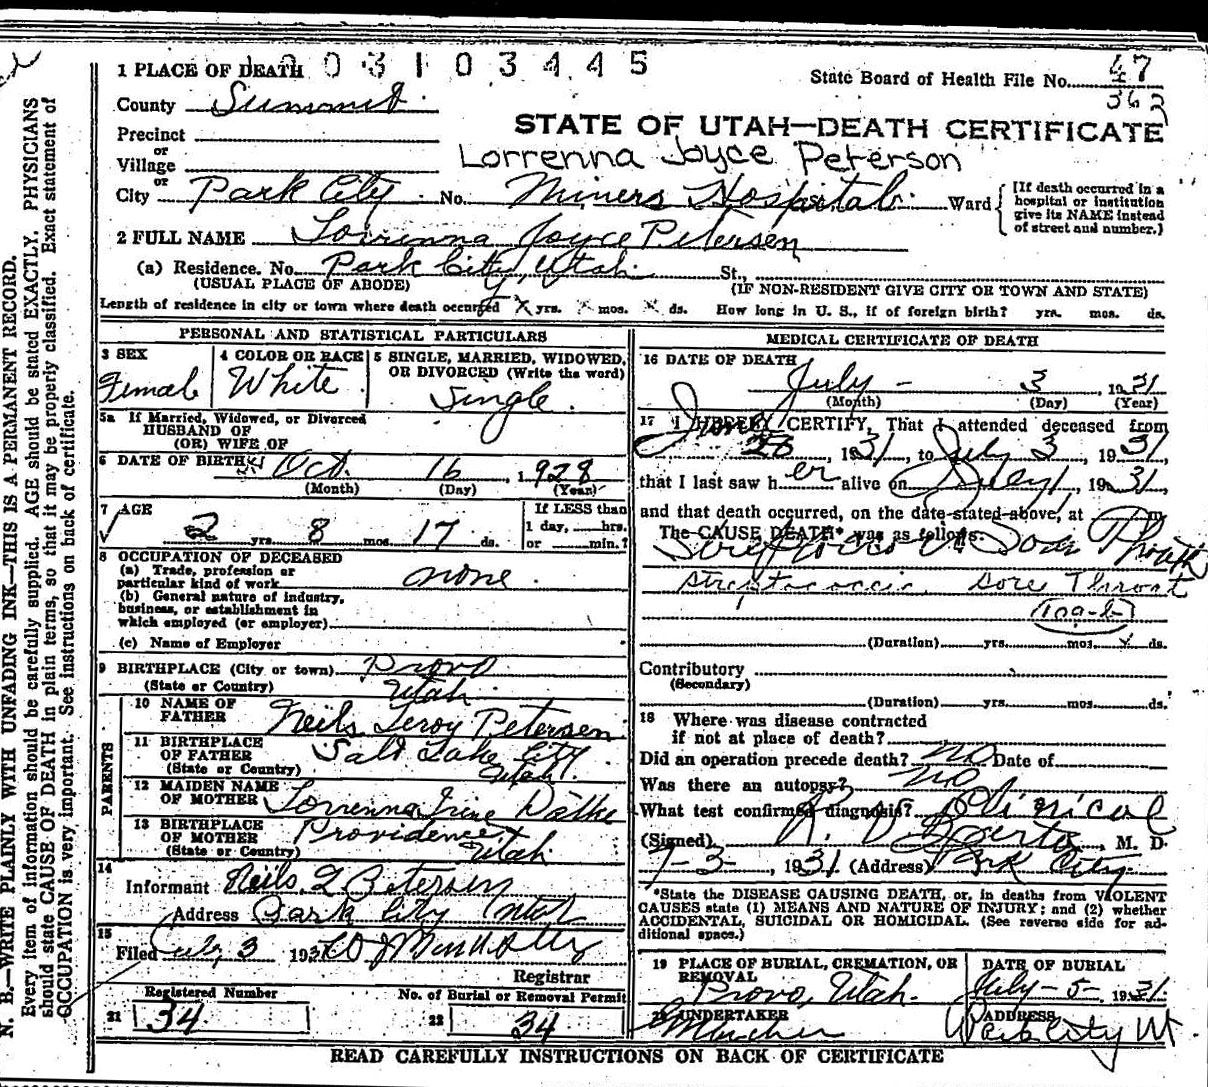 1 PLACE OF DEATH 0 0 3 1 0 3 4 4 5
State Board of Health File No. 47
362
County Summit
STATE OF UTAH—DEATH CERTIFICATE
Precinct
or
Village
Lorrenna Joyce Peterson
or
City Park City No. Miners Hospital Ward
[If death occurred in a hospital or institution give its NAME instead of street and number.]
2 FULL NAME Lorrenna Joyce Petersen
(a) Residence. No. Park City, Utah St.,
(USUAL PLACE OF ABODE) (IF NON-RESIDENT GIVE CITY OR TOWN AND STATE)
Length of residence in city or town where death occurred yrs. mos. ds. How long in U. S., if of foreign birth? yrs. mos. ds.
PERSONAL AND STATISTICAL PARTICULARS
3 SEX
Female
4 COLOR OR RACE
White
5 SINGLE, MARRIED, WIDOWED, OR DIVORCED (Write the word)
Single
5a If Married, Widowed, or Divorced
HUSBAND OF
(OR) WIFE OF
6 DATE OF BIRTH Oct. 16, 1928
(Month) (Day) (Year)
7 AGE
2 yrs. 8 mos. 17 ds.
If LESS than
1 day, hrs.
or min.?
8 OCCUPATION OF DECEASED
(a) Trade, profession or
particular kind of work none
(b) General nature of industry,
business, or establishment in
which employed (or employer)
(c) Name of Employer
9 BIRTHPLACE (City or town) Provo
(State or Country) Utah
PARENTS
10 NAME OF
FATHER Neils Leroy Petersen
11 BIRTHPLACE
OF FATHER Salt Lake City
(State or Country) Utah
12 MAIDEN NAME
OF MOTHER Lorrenna Irine
13 BIRTHPLACE
OF MOTHER Providence
(State or Country) Utah
14
Informant Neils L Petersen
Address Park City Utah
15
Filed July 3 1931
Registrar
Registered Number
21 34
No. of Burial or Removal Permit
22 34
MEDICAL CERTIFICATE OF DEATH
16 DATE OF DEATH
July - 3 1931
(Month) (Day) (Year)
17 I HEREBY CERTIFY, That I attended deceased from
June 28, 1931, to July 3, 1931,
that I last saw her alive on July 1, 1931,
and that death occurred, on the date stated above, at m
The CAUSE DEATH* was as follows:
Streptococcic Sore Throat
Streptococcic Sore Throat
(Duration) yrs. mos. ds.
Contributory
(Secondary)
(Duration) yrs. mos. ds.
18 Where was disease contracted
if not at place of death?
Did an operation precede death? no Date of
Was there an autopsy? no
What test confirmed diagnosis? Clinical
(Signed) M. D.
7-3-, 1931 (Address) Park City
*State the DISEASE CAUSING DEATH, or, in deaths from VIOLENT
CAUSES state (1) MEANS AND NATURE OF INJURY; and (2) whether
ACCIDENTAL, SUICIDAL OR HOMICIDAL. (See reverse side for ad-
ditional space.)
19 PLACE OF BURIAL, CREMATION, OR
REMOVAL
Provo, Utah.
DATE OF BURIAL
July - 5 - 1931
20 UNDERTAKER
ADDRESS
Park City Ut.
READ CAREFULLY INSTRUCTIONS ON BACK OF CERTIFICATE
N. B.—WRITE PLAINLY WITH UNFADING INK—THIS IS A PERMANENT RECORD.
Every item of information should be carefully supplied. AGE should be stated EXACTLY. PHYSICIANS
should state CAUSE OF DEATH in plain terms, so that it may be properly classified. Exact statement of
OCCUPATION is very important. See instructions on back of certificate.